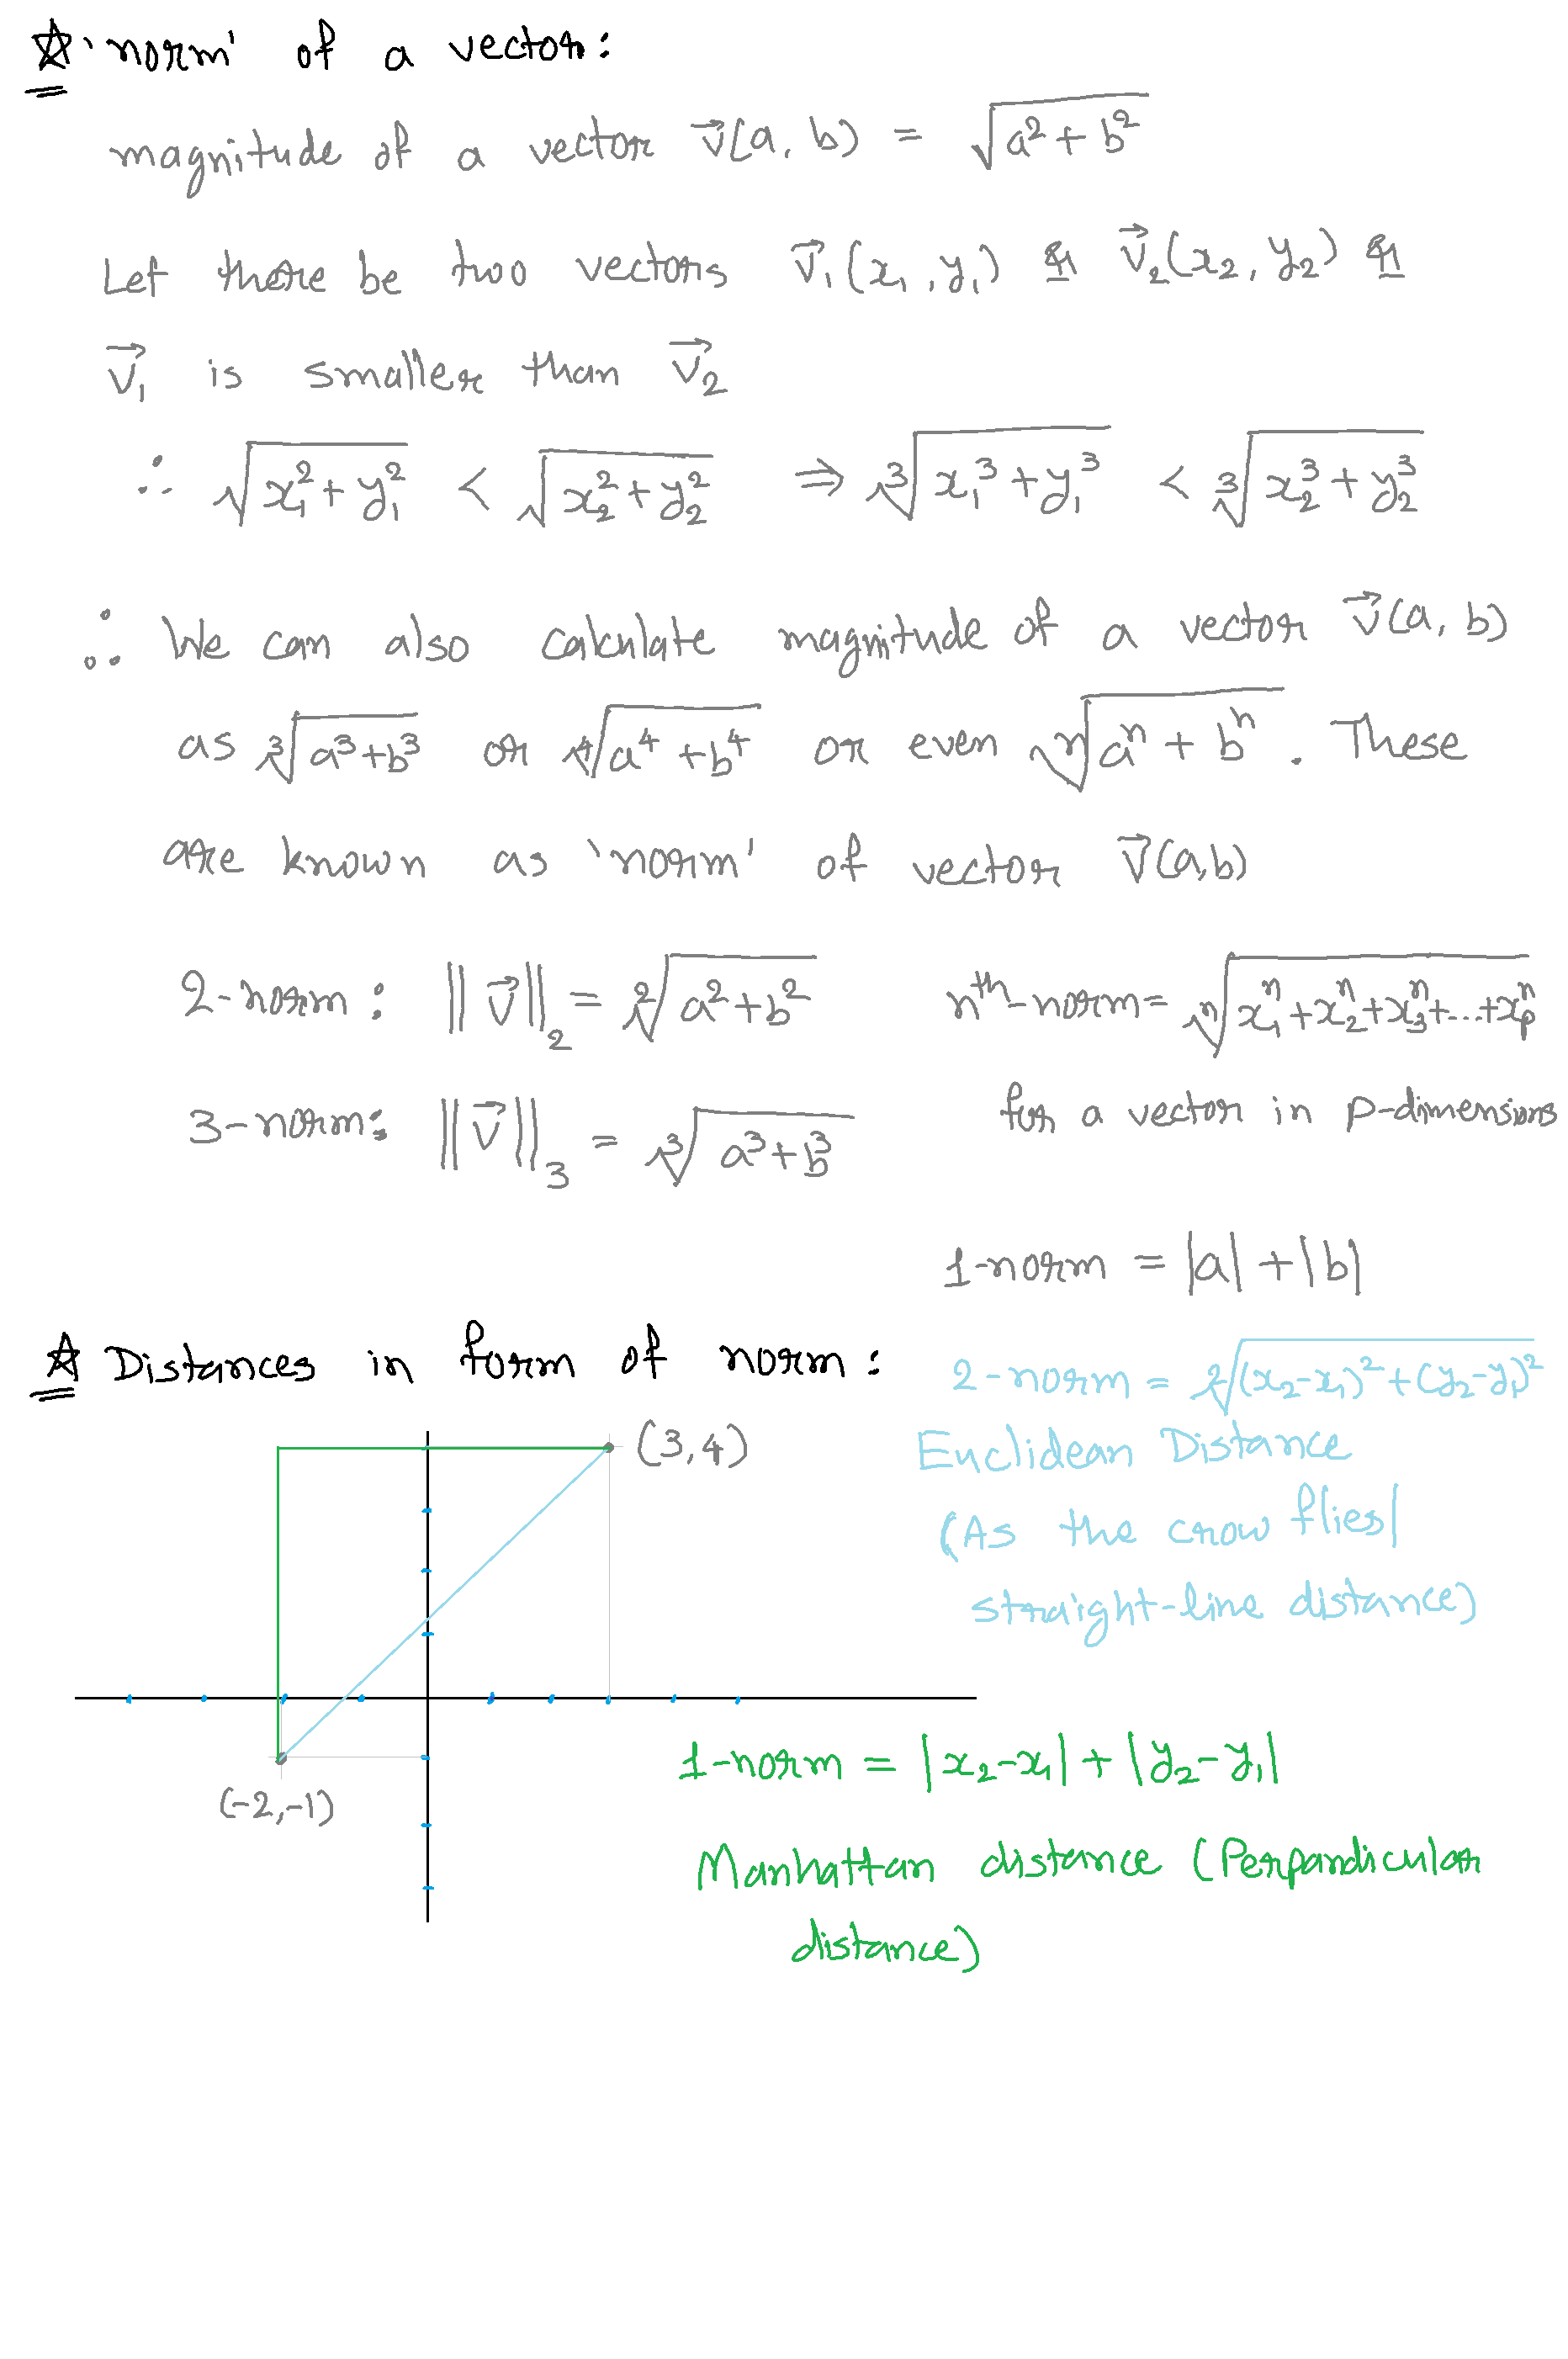 ☆ 'norm' of a vector:
magnitude of a vector v⃗(a, b) = √(a² + b²)
Let there be two vectors v⃗₁(x₁, y₁) & v⃗₂(x₂, y₂) &
v⃗₁ is smaller than v⃗₂
∴ √(x₁² + y₁²) < √(x₂² + y₂²) ⇒ ∛(x₁³ + y₁³) < ∛(x₂³ + y₂³)
∴ We can also calculate magnitude of a vector v⃗(a, b)
as ∛(a³+b³) or ∜(a⁴+b⁴) or even ⁿ√(aⁿ + bⁿ). These
are known as 'norm' of vector v⃗(a,b)
2-norm: ||v⃗||₂ = ²√(a²+b²)
nth-norm = ⁿ√(x₁ⁿ+x₂ⁿ+x₃ⁿ+...+xₚⁿ)
for a vector in p-dimensions
3-norm: ||v⃗||₃ = ∛(a³+b³)
1-norm = |a| + |b|
☆ Distances in form of norm:
2-norm = ²√((x₂-x₁)²+(y₂-y₁)²)
Euclidean Distance
(As the crow flies|
straight-line distance)
(3,4)
(-2,-1)
1-norm = |x₂-x₁| + |y₂-y₁|
Manhattan distance (Perpandicular
distance)